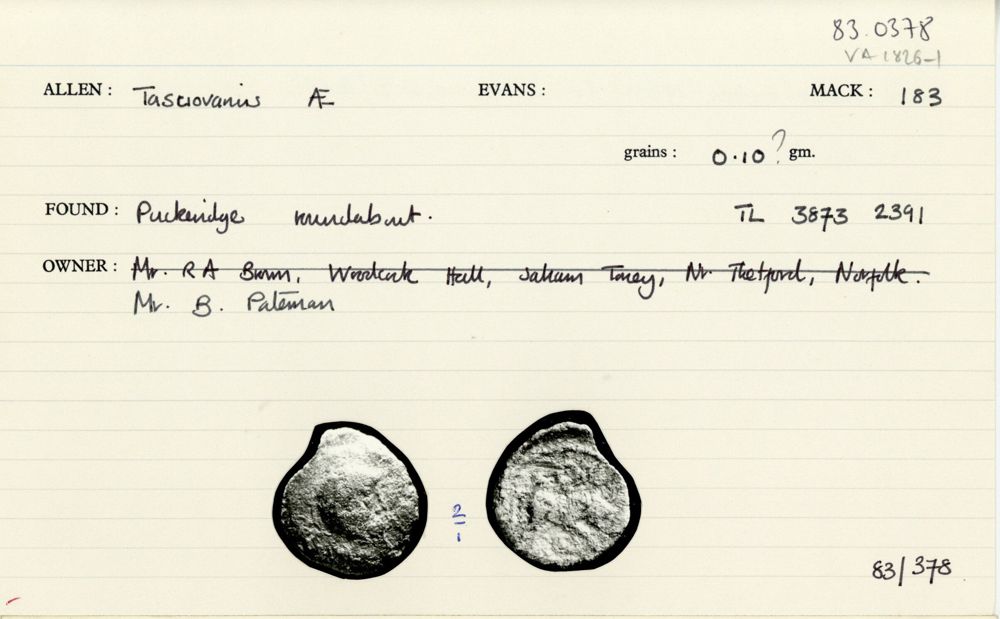 83.0378
VA 1826-1
ALLEN : Tasciovanus Æ EVANS : MACK : 183
grains : 0.10? gm.
FOUND : Puckeridge roundabout. TL 3873 2391
OWNER : Mr. R A Brown, Woodcock Hall, Saham Toney, Nr. Thetford, Norfolk.
Mr. B. Pateman
2
1
83/378